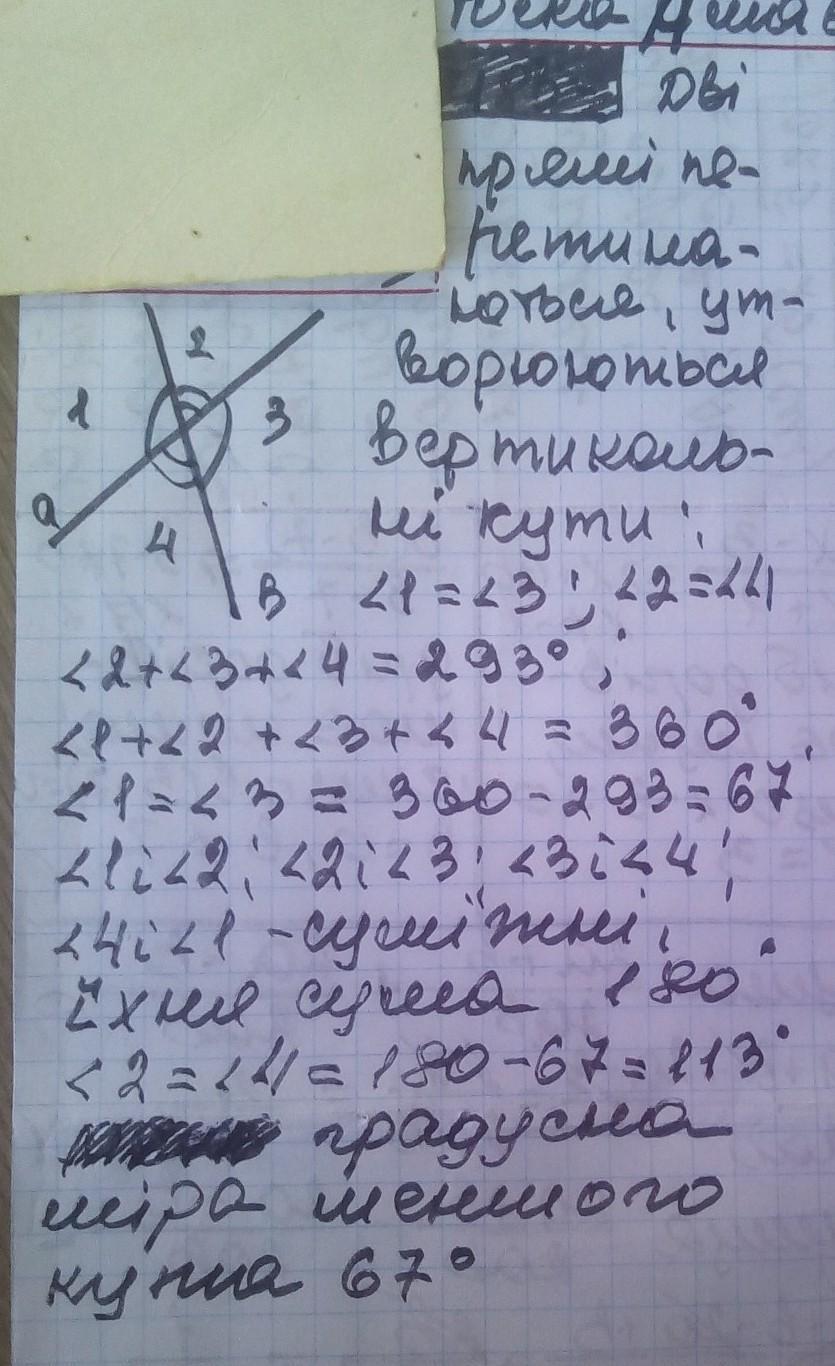 Дві
прямі пе-
ретина-
ються, ут-
ворюються
вертикаль-
ні кути:
1
2
3
4
a
B
<1 = <3; <2 = <4
<2+<3+<4 = 293°;
<1+<2+<3+<4 = 360°
<1 = <3 = 360-293=67°
<1 і <2; <2 і <3; <3 і <4;
<4 і <1 - суміжні,
їхня сума 180°
<2 = <4 = 180-67=113°
градусна
міра меншого
кута 67°